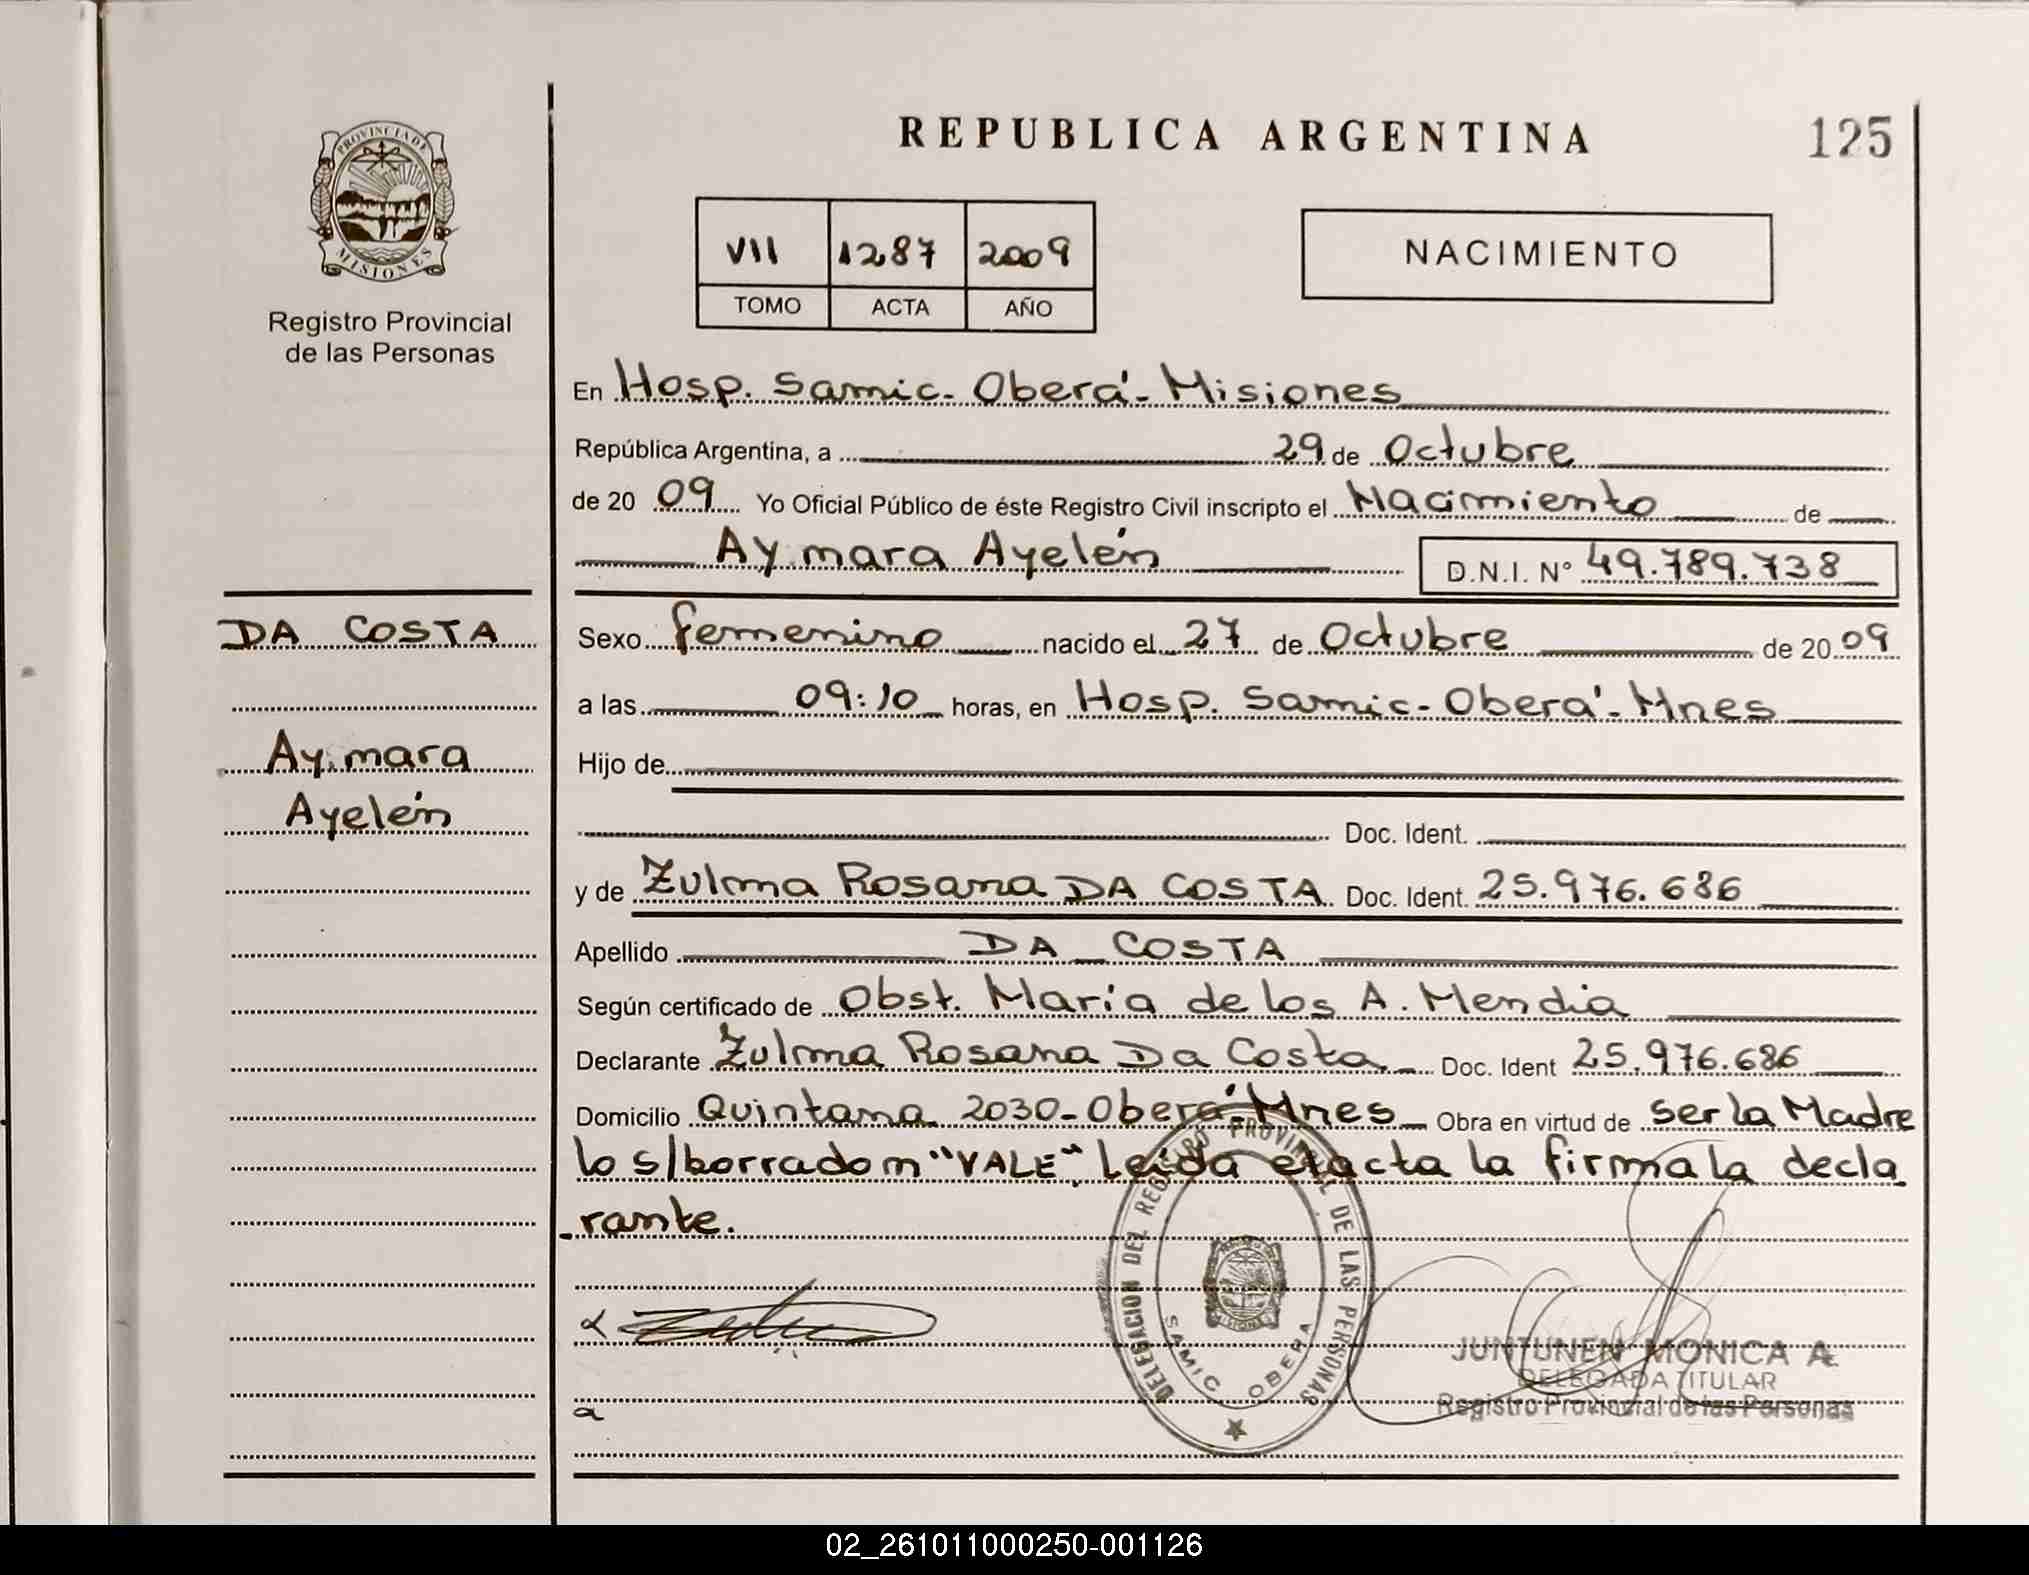 REPUBLICA ARGENTINA
125
PROVINCIA DE
MISIONES
Registro Provincial
de las Personas
VII 1287 2009
TOMO ACTA AÑO
NACIMIENTO
En Hosp. Samic - Oberá - Misiones
República Argentina, a 29 de Octubre
de 2009 Yo Oficial Público de éste Registro Civil inscripto el Nacimiento de
Aymara Ayelén D.N.I. N° 49.789.738
DA COSTA
Aymara
Ayelén
Sexo femenino nacido el 27 de Octubre de 2009
a las 09:10 horas, en Hosp. Samic - Oberá - Mnes
Hijo de
Doc. Ident.
y de Zulma Rosana DA COSTA Doc. Ident. 25.976.686
Apellido DA COSTA
Según certificado de Obst. Maria de los A. Mendia
Declarante Zulma Rosana Da Costa Doc. Ident 25.976.686
Domicilio Quintana 2030 - Oberá Mnes Obra en virtud de ser la Madre
lo s/borrado m "VALE" Leida el acta la firma la decla
rante.
DELEGACION DEL REGISTRO PROVINCIAL DE LAS PERSONAS
SAMIC OBERA
JUNTUNEN MONICA A.
DELEGADA TITULAR
Registro Provincial de las Personas
02_261011000250-001126